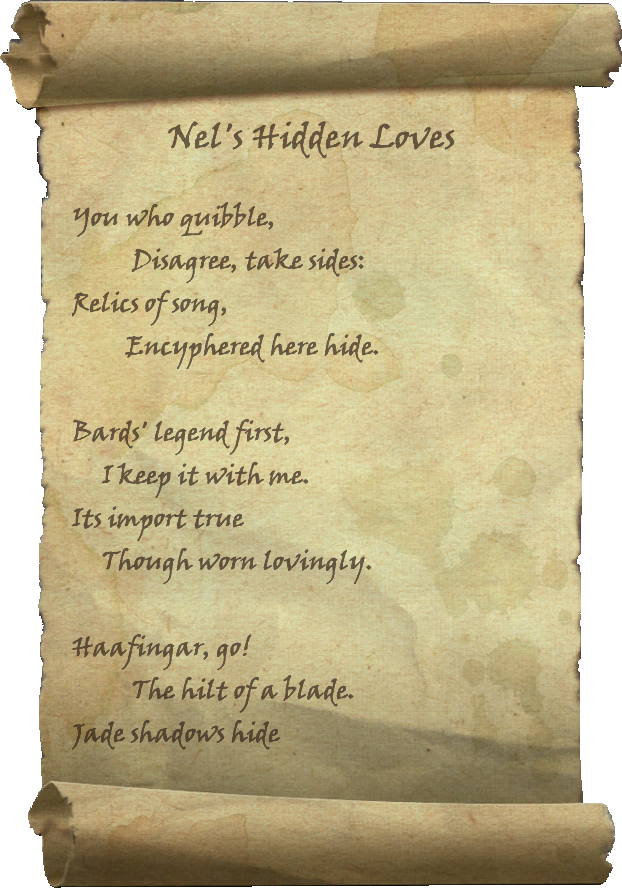 Nel's Hidden Loves
You who quibble,
Disagree, take sides:
Relics of song,
Encyphered here hide.
Bards' legend first,
I keep it with me.
Its import true
Though worn lovingly.
Haafingar, go!
The hilt of a blade.
Jade shadows hide